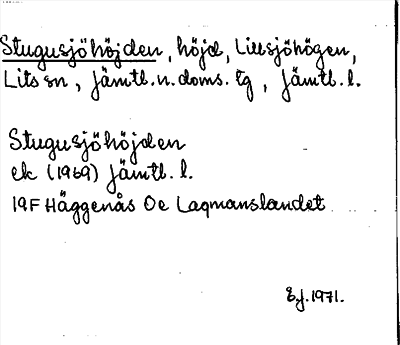 Stugusjöhöjden, höjd, Lillsjöhögen,
Lits sn, Jämtl. n. doms. tg, Jämtl. l.
Stugusjöhöjden
ek (1969) Jämtl. l.
19F Häggenås Oe Laqmanslandet
Ej. 1971.